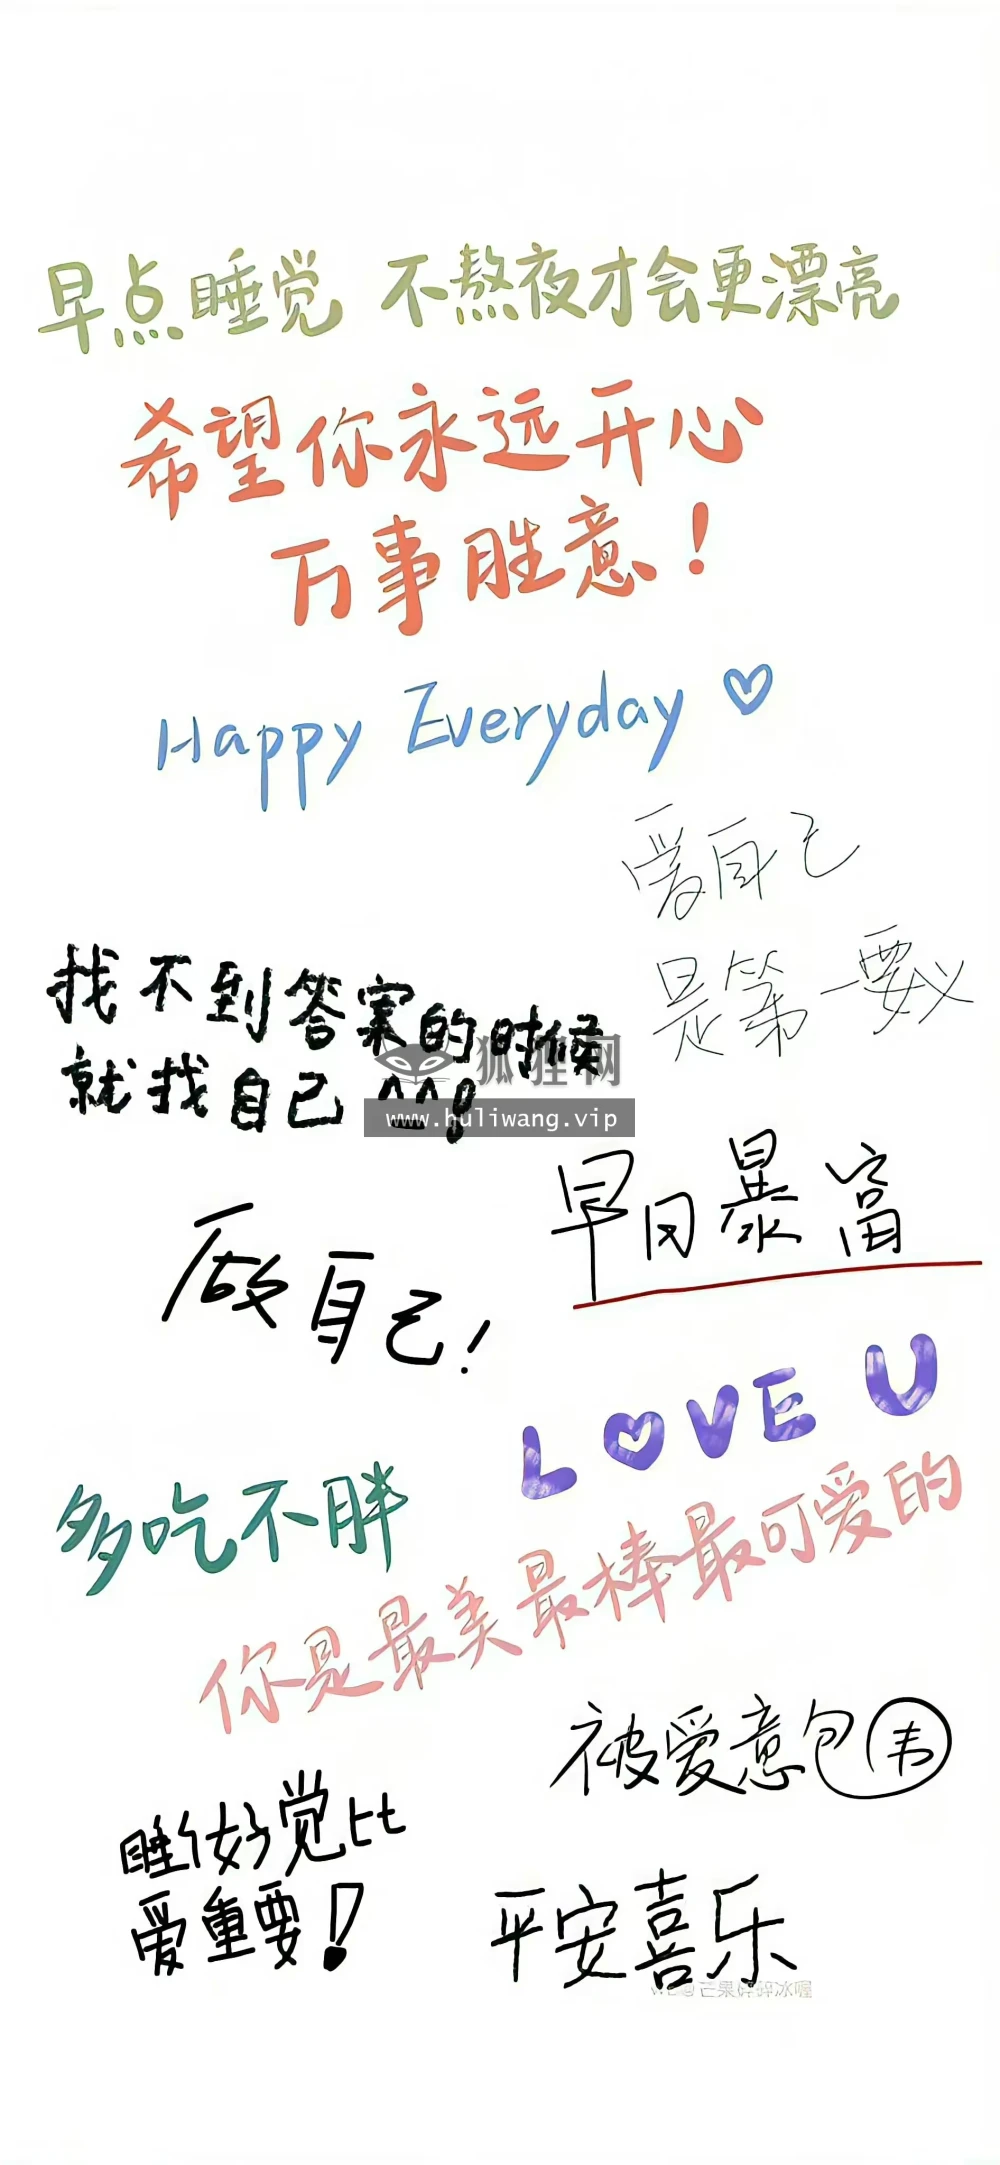 早点睡觉 不熬夜才会更漂亮
希望你永远开心
万事胜意!
Happy Everyday ♡
爱自己
是第一要义
找不到答案的时候
就找自己 ^^!
狐狸网
www.huliwang.vip
早日暴富
做自己!
LOVE U
多吃不胖
你是最美最棒最可爱的
被爱意包韦
睡好觉比
爱重要!
平安喜乐